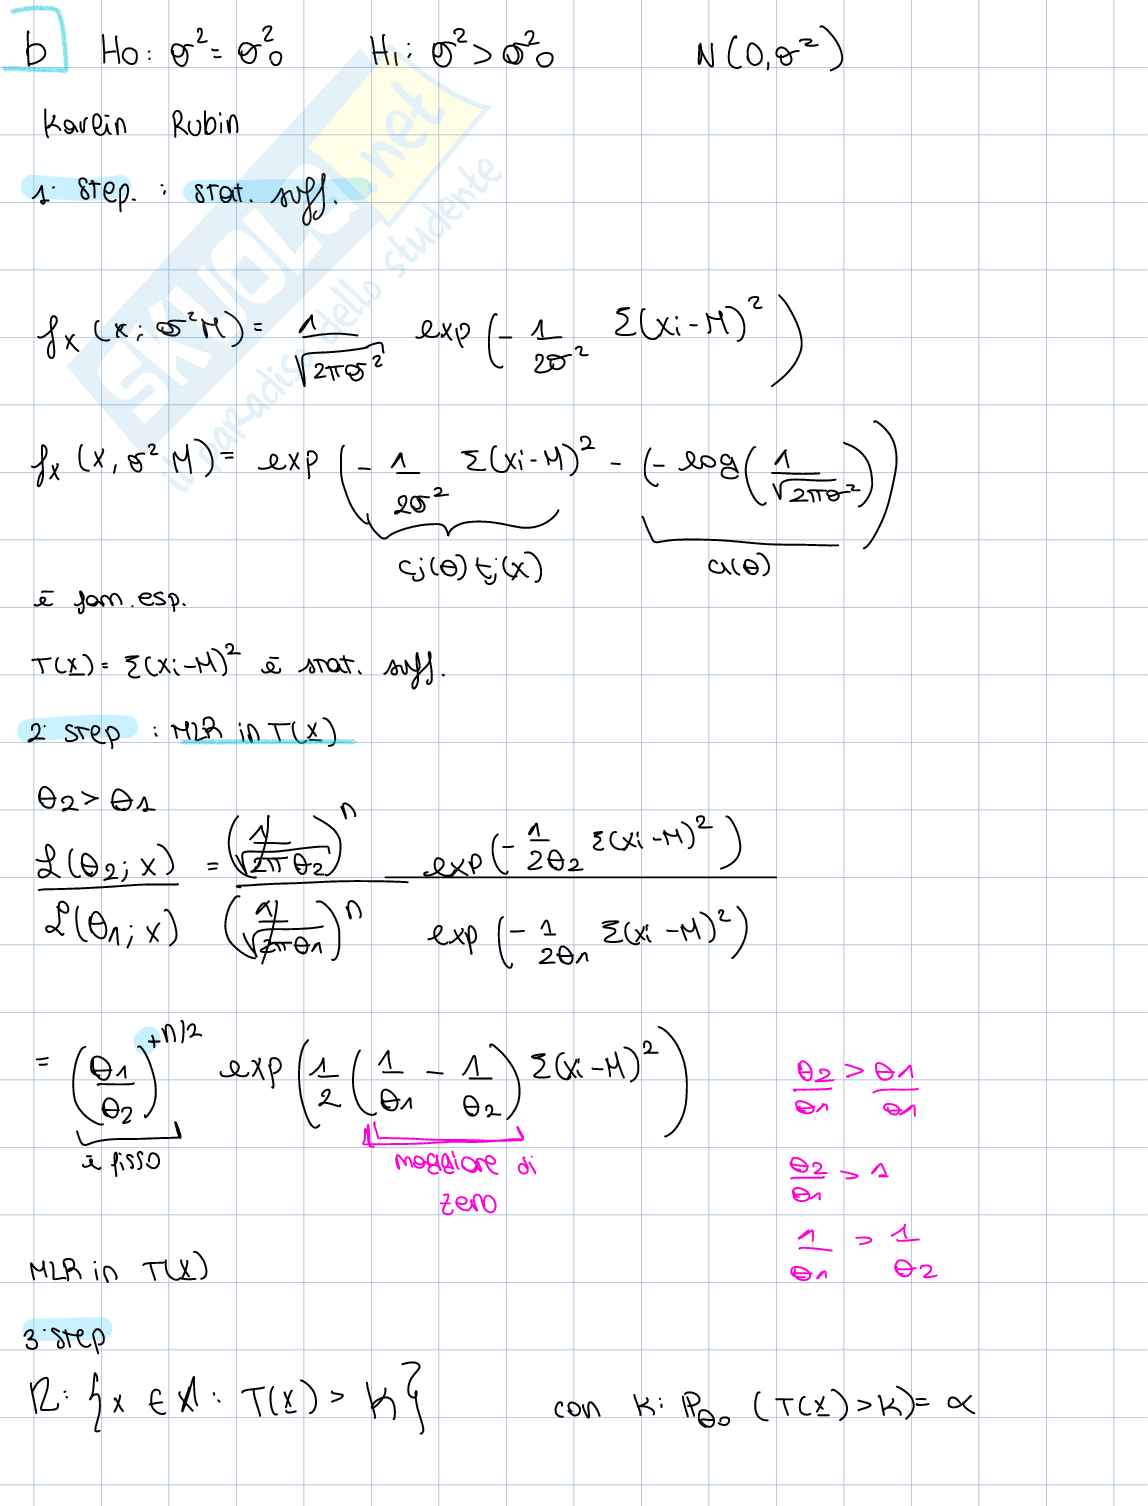 b H0: σ² = σ²₀ H1: σ² > σ²₀ N(0, σ²)
Karlin Rubin
1· step. : stat. suff.
fx (x; σ² M) = 1/√(2πσ²) exp (- 1/(2σ²) Σ(xi-M)²)
fx (x, σ² M) = exp (- 1/(2σ²) Σ(xi-M)² - (- log(1/√(2πσ²))))
cj(θ) tj(x) d(θ)
è fam. esp.
T(x) = Σ(xi-M)² è stat. suff.
2· step : MLR in T(x)
θ2 > θ1
L(θ2; x) / L(θ1; x) = (1/√(2π θ2))ⁿ exp (- 1/(2θ2) Σ(xi-M)²) / (1/√(2πθ1))ⁿ exp (- 1/(2θ1) Σ(xi-M)²)
= (θ1/θ2)^(+n/2) exp (1/2 (1/θ1 - 1/θ2) Σ(xi-M)²) θ2/θ1 > θ1/θ1
è fisso maggiore di zero
θ2/θ1 > 1
1/θ1 > 1/θ2
MLR in T(x)
3· step
R: {x ∈ X : T(x) > K} con K: Pθ0 (T(x) > K) = α
SKUOLA.net
il paradiso dello studente